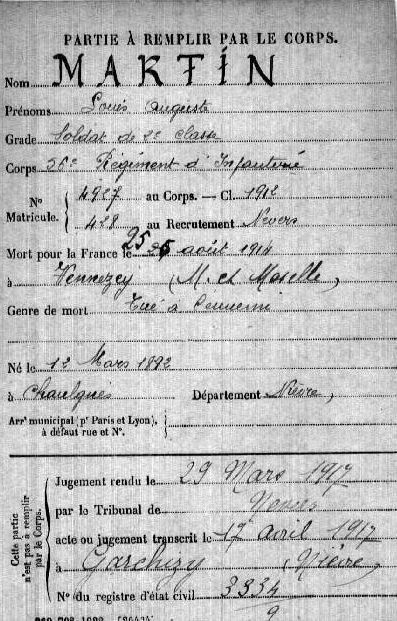 PARTIE À REMPLIR PAR LE CORPS.
Nom MARTIN
Prénoms Louis Auguste
Grade Soldat de 2e classe
Corps 56e Régiment d'Infanterie
N° Matricule. { 4927 au Corps. — Cl. 1912
428 au Recrutement Nevers
Mort pour la France le 25 août 1914
à Vennezey (M. et Moselle)
Genre de mort Tué à l'ennemi
Né le 12 Mars 1892
à Chaulgnes Département Nièvre
Arrt municipal (pr Paris et Lyon),
à défaut rue et N°.
Cette partie n'est pas à remplir par le Corps.
Jugement rendu le 29 Mars 1917
par le Tribunal de Nevers
acte ou jugement transcrit le 17 avril 1917
à Garchizy (Nièvre)
N° du registre d'état civil 3334
9